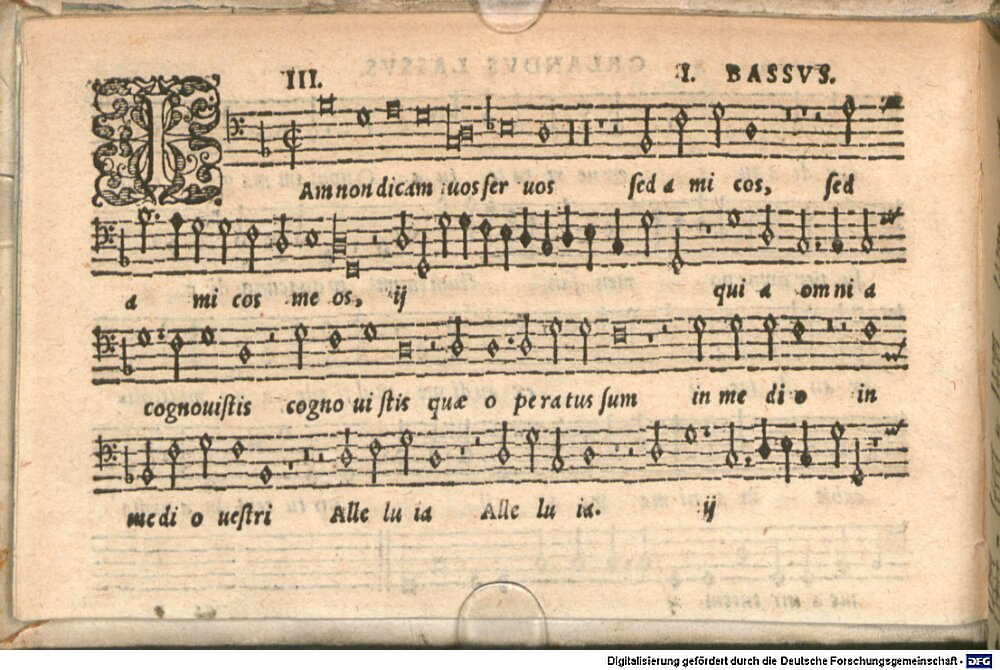 III. I. BASSVS.
IAmnondicam uosser uos sed a mi cos, sed
a mi cos me os, ij qui a omni a
cognouistis cogno ui stis quæ o peratus sum in me di o in
medi o uestri Alle lu ia Alle lu ia. ij
Digitalisierung gefördert durch die Deutsche Forschungsgemeinschaft - DFG